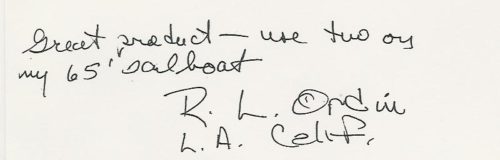 Great product — use two on
my 65' sailboat
R. L. Ordin
L.A. Calif.